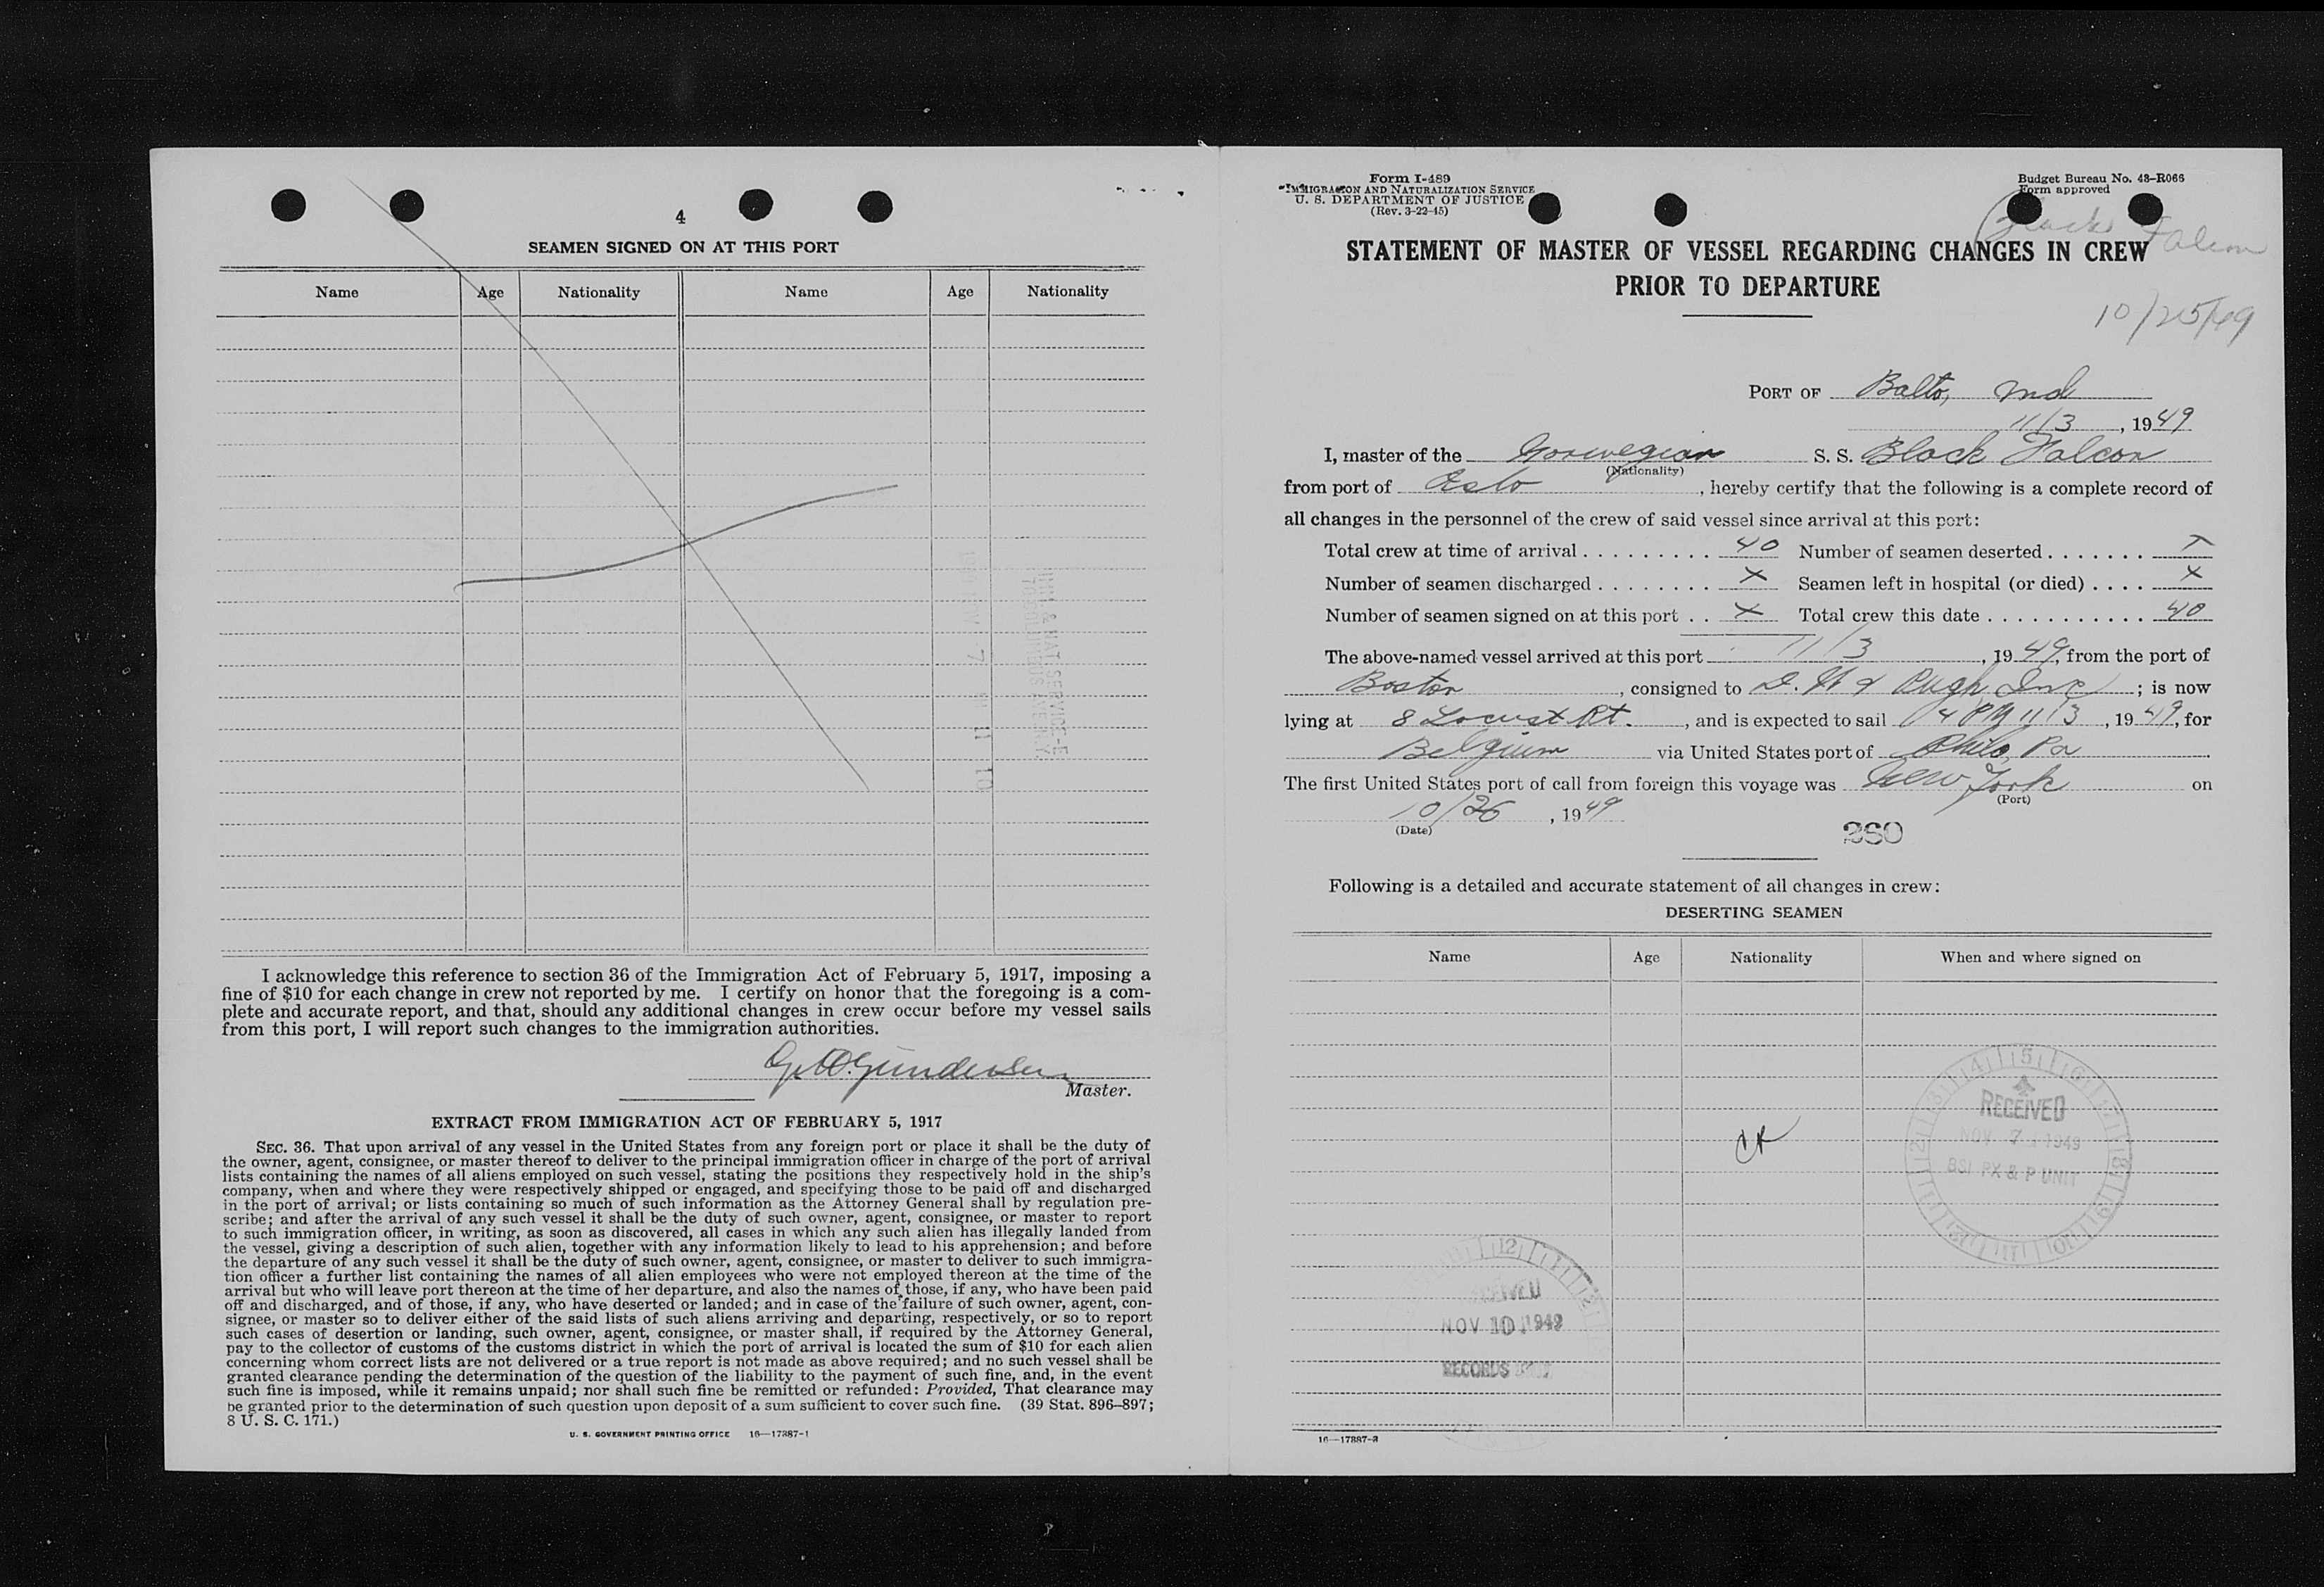 4
SEAMEN SIGNED ON AT THIS PORT
Name Age Nationality Name Age Nationality
I acknowledge this reference to section 36 of the Immigration Act of February 5, 1917, imposing a
fine of $10 for each change in crew not reported by me. I certify on honor that the foregoing is a com-
plete and accurate report, and that, should any additional changes in crew occur before my vessel sails
from this port, I will report such changes to the immigration authorities.
Gundersen
Master.
EXTRACT FROM IMMIGRATION ACT OF FEBRUARY 5, 1917
SEC. 36. That upon arrival of any vessel in the United States from any foreign port or place it shall be the duty of
the owner, agent, consignee, or master thereof to deliver to the principal immigration officer in charge of the port of arrival
lists containing the names of all aliens employed on such vessel, stating the positions they respectively hold in the ship's
company, when and where they were respectively shipped or engaged, and specifying those to be paid off and discharged
in the port of arrival; or lists containing so much of such information as the Attorney General shall by regulation pre-
scribe; and after the arrival of any such vessel it shall be the duty of such owner, agent, consignee, or master to report
to such immigration officer, in writing, as soon as discovered, all cases in which any such alien has illegally landed from
the vessel, giving a description of such alien, together with any information likely to lead to his apprehension; and before
the departure of any such vessel it shall be the duty of such owner, agent, consignee, or master to deliver to such immigra-
tion officer a further list containing the names of all alien employees who were not employed thereon at the time of the
arrival but who will leave port thereon at the time of her departure, and also the names of those, if any, who have been paid
off and discharged, and of those, if any, who have deserted or landed; and in case of the failure of such owner, agent, con-
signee, or master so to deliver either of the said lists of such aliens arriving and departing, respectively, or so to report
such cases of desertion or landing, such owner, agent, consignee, or master shall, if required by the Attorney General,
pay to the collector of customs of the customs district in which the port of arrival is located the sum of $10 for each alien
concerning whom correct lists are not delivered or a true report is not made as above required; and no such vessel shall be
granted clearance pending the determination of the question of the liability to the payment of such fine, and, in the event
such fine is imposed, while it remains unpaid; nor shall such fine be remitted or refunded: Provided, That clearance may
be granted prior to the determination of such question upon deposit of a sum sufficient to cover such fine. (39 Stat. 896–897;
8 U. S. C. 171.)
U. S. GOVERNMENT PRINTING OFFICE 16—17887-1
Form I-489
IMMIGRATION AND NATURALIZATION SERVICE
U. S. DEPARTMENT OF JUSTICE
(Rev. 3-22-45)
Budget Bureau No. 43-R066
Form approved
Black Falcon
STATEMENT OF MASTER OF VESSEL REGARDING CHANGES IN CREW
PRIOR TO DEPARTURE
10/25/49
PORT OF Balto, Md
11/3, 1949
I, master of the Norwegian S. S. Black Falcon
(Nationality)
from port of Oslo, hereby certify that the following is a complete record of
all changes in the personnel of the crew of said vessel since arrival at this port:
Total crew at time of arrival . . . . . . . . . 40 Number of seamen deserted . . . . . . . X
Number of seamen discharged . . . . . . . . X Seamen left in hospital (or died) . . . . X
Number of seamen signed on at this port . . X Total crew this date . . . . . . . . . . . 40
The above-named vessel arrived at this port 11/3, 1949, from the port of
Boston, consigned to Pugh Inc; is now
lying at 8 Locust Pt., and is expected to sail 4 PM 11/3, 1949, for
Belgium via United States port of Phila, Pa
The first United States port of call from foreign this voyage was New York on
(Port)
10/26, 1949
(Date)
260
Following is a detailed and accurate statement of all changes in crew:
DESERTING SEAMEN
Name Age Nationality When and where signed on
RECEIVED
NOV 7 1949
BSI PX & P UNIT
NOV 10 1949
RECORDS
16—17887-2